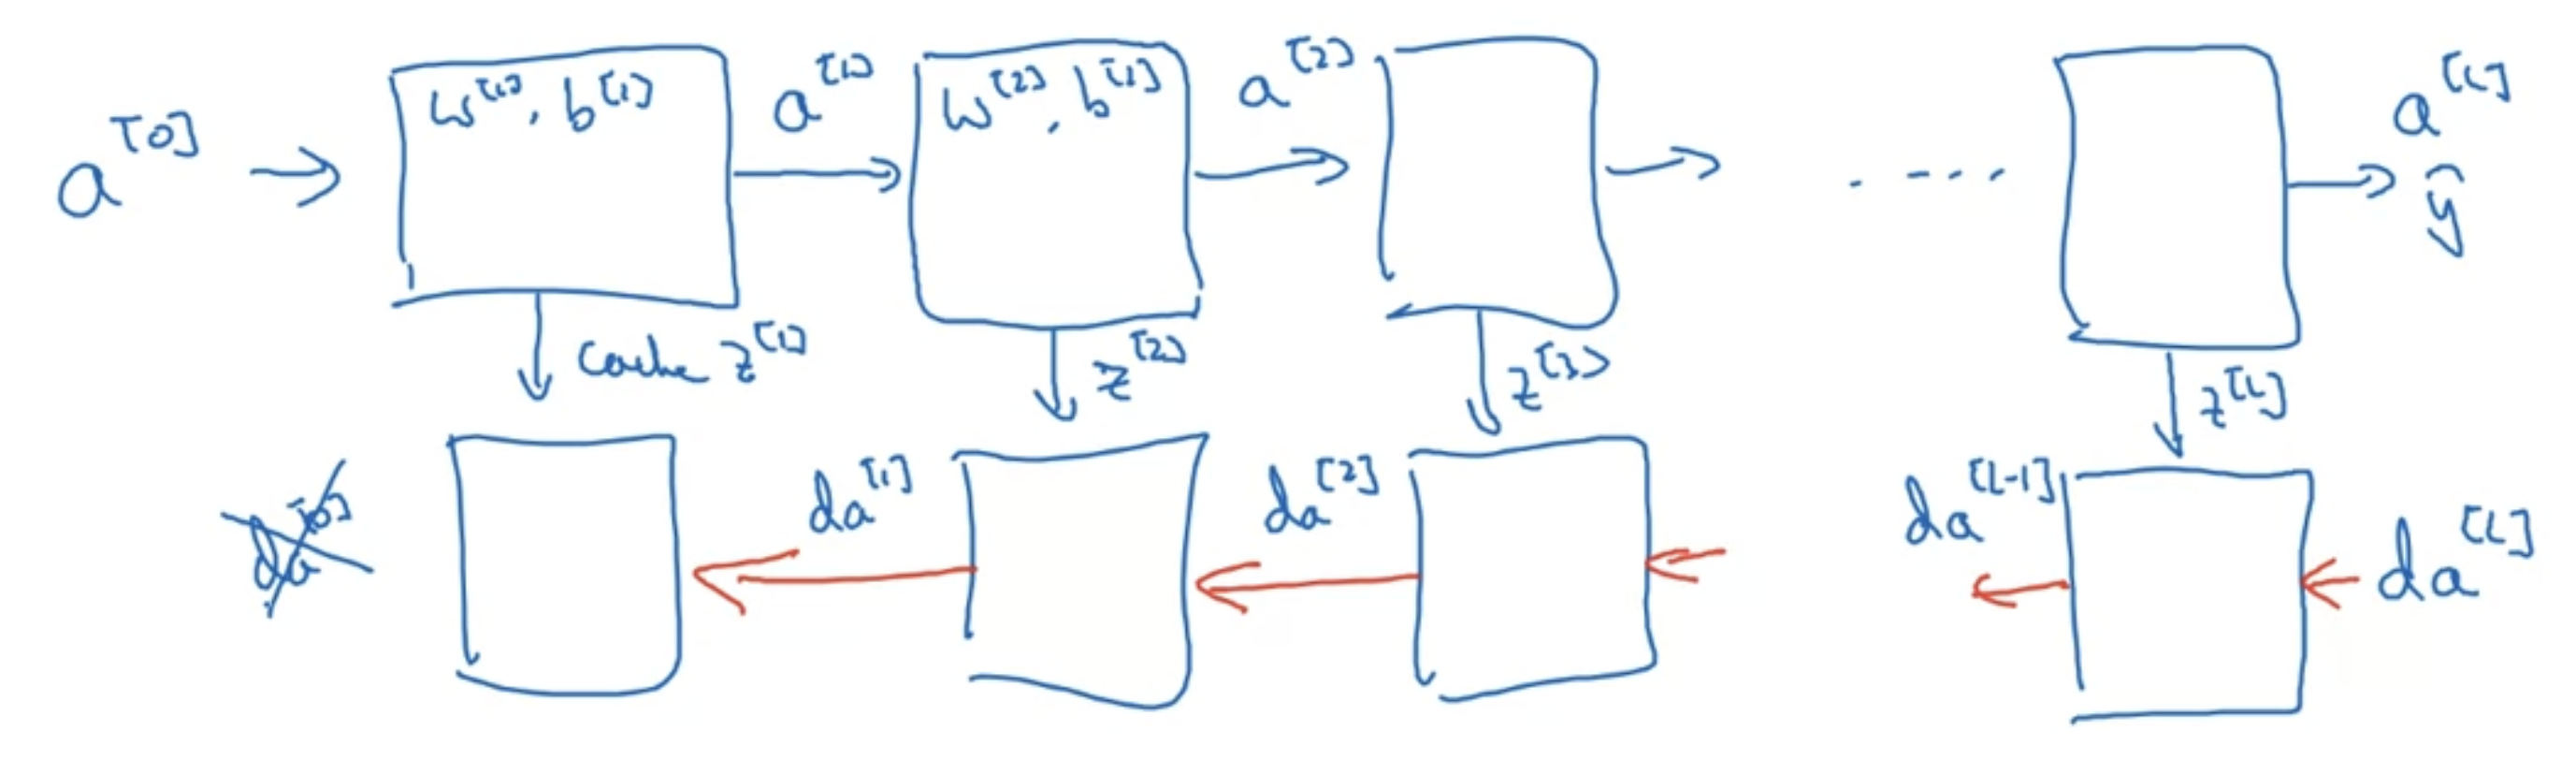 a^[0] → w^[1], b^[1] a^[1] → w^[2], b^[1] a^[2] → → ..... → a^[L]
ŷ
cache z^[1] z^[2] z^[3] z^[L]
da^[0] da^[1] da^[2] da^[L-1] da^[L]